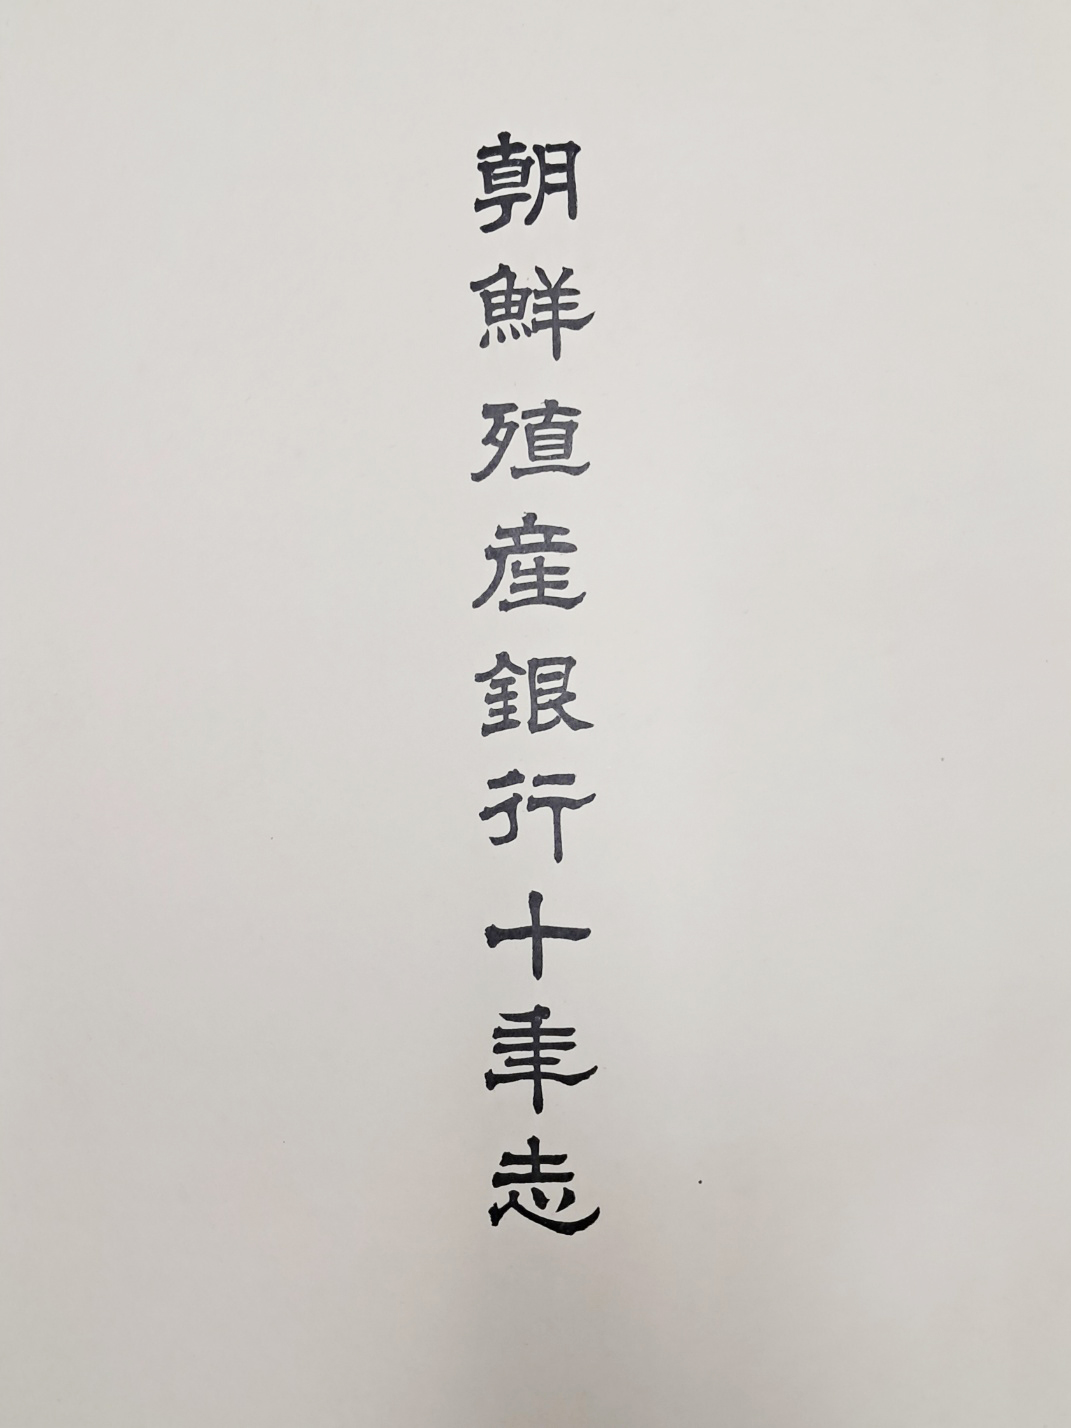 朝鮮殖産銀行十年志